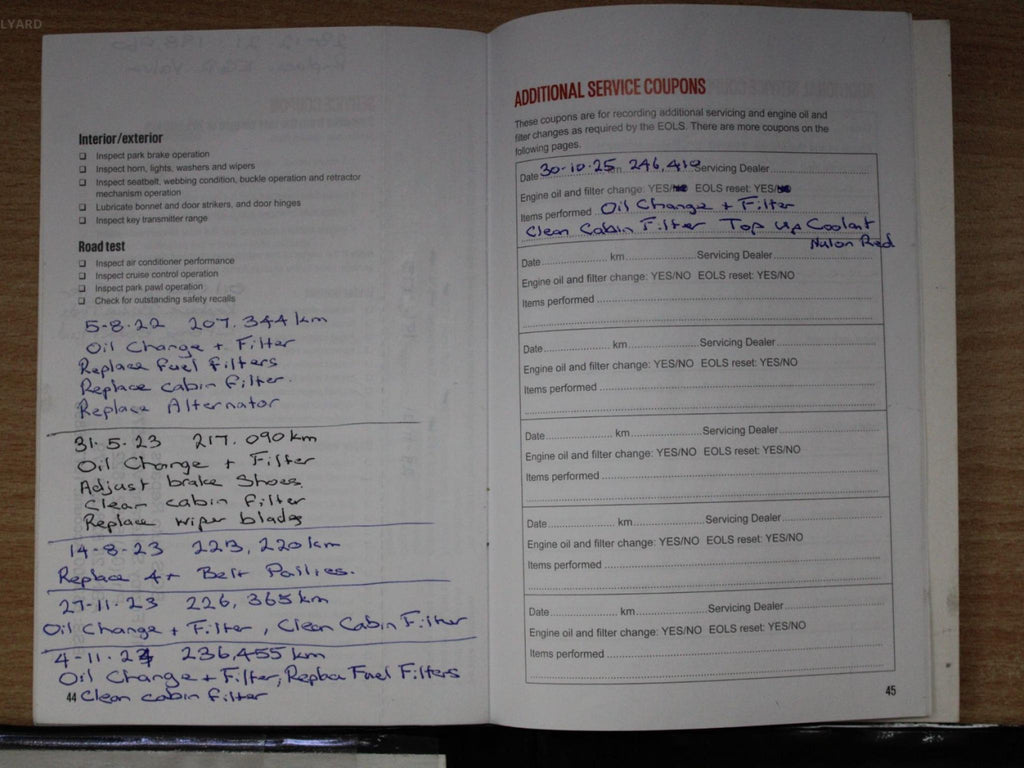 LYARD
Interior/exterior
❑ Inspect park brake operation
❑ Inspect horn, lights, washers and wipers
❑ Inspect seatbelt, webbing condition, buckle operation and retractor
mechanism operation
❑ Lubricate bonnet and door strikers, and door hinges
❑ Inspect key transmitter range
Road test
❑ Inspect air conditioner performance
❑ Inspect cruise control operation
❑ Inspect park pawl operation
❑ Check for outstanding safety recalls
5-8-22 207.344km
Oil Change + Filter
Replace fuel filters
Replace cabin filter.
Replace Alternator
31.5.23 217.090km
Oil Change + Filter
Adjust brake Shoes
Clean cabin filter
Replace wiper blades
14-8-23 223,220km
Replace 4 + Belt Pullies.
27-11-23 226,365km
Oil Change + Filter, Clean Cabin Filter
4-11-24 236,455km
Oil Change + Filter, Replace Fuel Filters
44 Clean cabin filter
ADDITIONAL SERVICE COUPONS
These coupons are for recording additional servicing and engine oil and
filter changes as required by the EOLS. There are more coupons on the
following pages.
Date 30-10-25 246,419 Servicing Dealer
Engine oil and filter change: YES/NO EOLS reset: YES/NO
Items performed Oil Change + Filter
Clean Cabin Filter Top Up Coolant
Nulon Red
Date km Servicing Dealer
Engine oil and filter change: YES/NO EOLS reset: YES/NO
Items performed
Date km Servicing Dealer
Engine oil and filter change: YES/NO EOLS reset: YES/NO
Items performed
Date km Servicing Dealer
Engine oil and filter change: YES/NO EOLS reset: YES/NO
Items performed
Date km Servicing Dealer
Engine oil and filter change: YES/NO EOLS reset: YES/NO
Items performed
Date km Servicing Dealer
Engine oil and filter change: YES/NO EOLS reset: YES/NO
Items performed
45